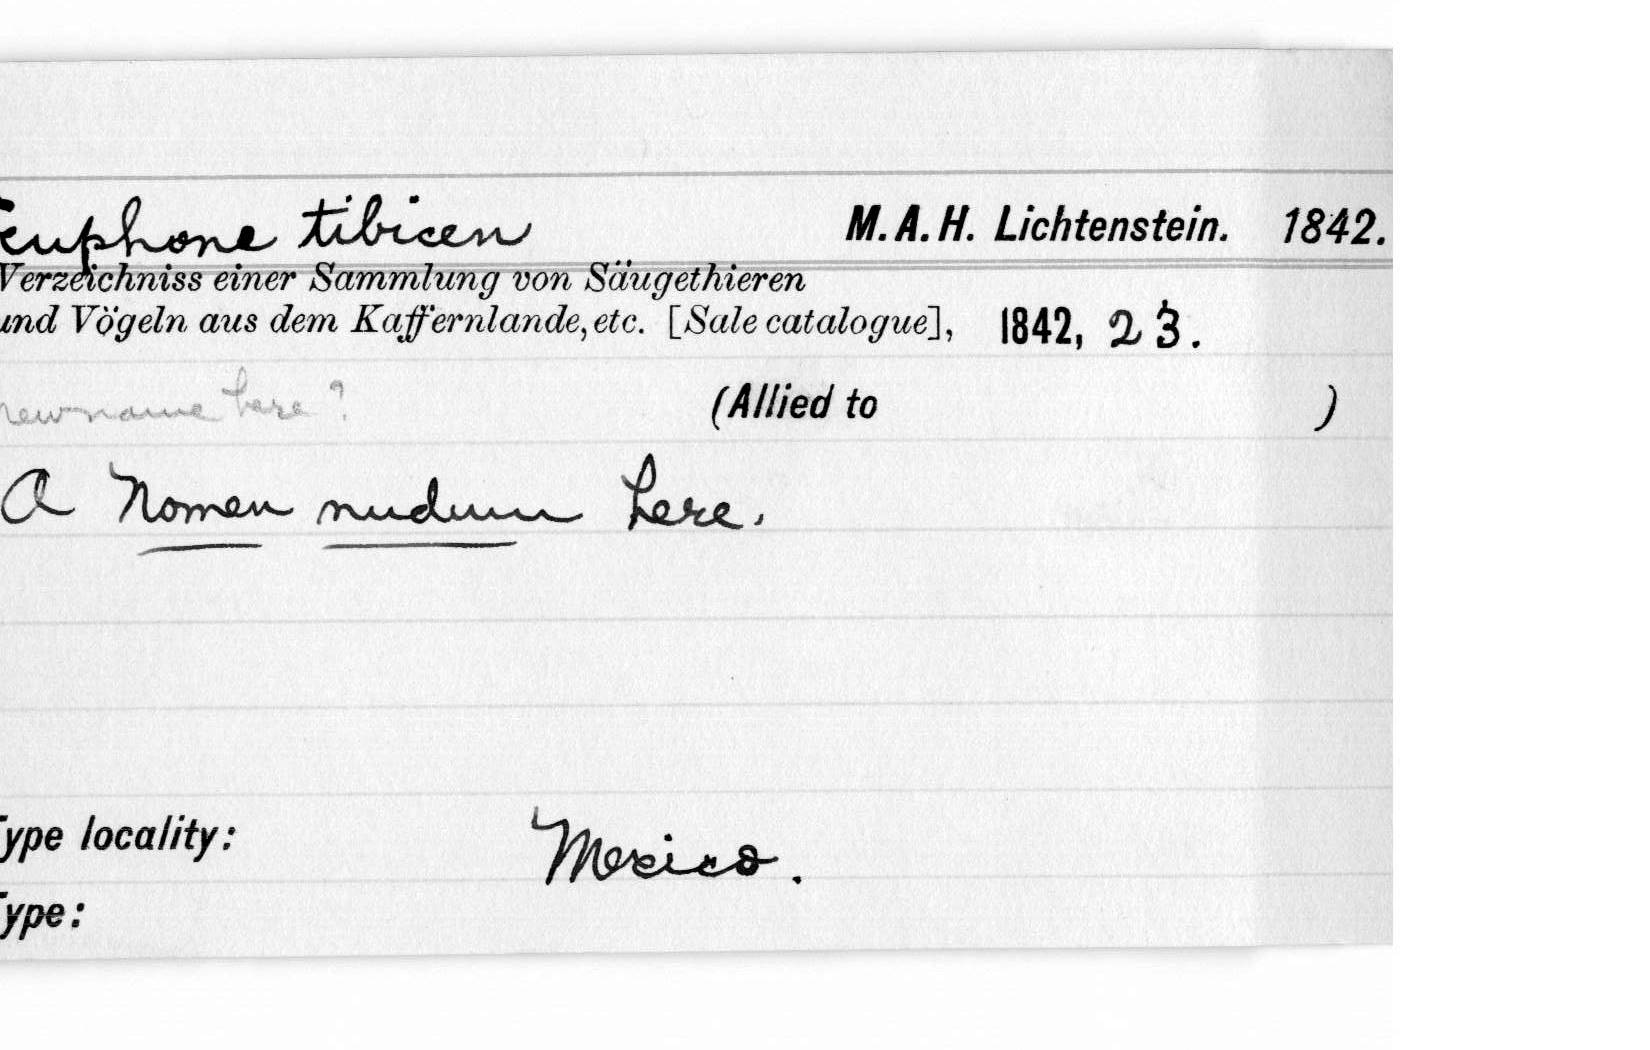 Euphone tibicen M. A. H. Lichtenstein. 1842.
Verzeichniss einer Sammlung von Säugethieren
und Vögeln aus dem Kaffernlande, etc. [Sale catalogue], 1842, 23.
new name here? (Allied to )
A Nomen nudum here.
Type locality: Mexico.
Type: